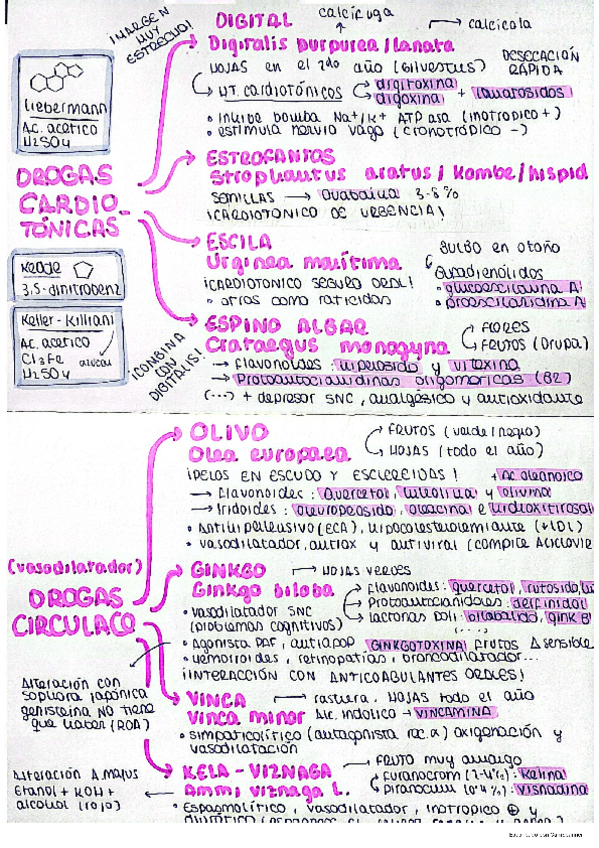 ¡MARGEN MUY ESTRECHO!
Liebermann
AC. acético
H2SO4
DROGAS CARDIO-TÓNICAS
Kedde
3,5-dinitrobenz
Keller-Killiani
AC. acético
Cl3Fe
H2SO4
azúcar
¡COMBINA CON DIGITALIS!
DIGITAL
calcífuga
calcícola
Digitalis purpurea/lanata
HOJAS en el 2do año (silvestres)
DESECACIÓN RÁPIDA
HT. cardiotónicos
digitoxina
digoxina
+ lanatósidos
• Inhibe bomba Na+/K+ ATPasa (inotrópico +)
• estimula nervio vago (cronotrópico -)
ESTROFANTOS
Strophantus gratus / kombe/hispid
SEMILLAS → Ouabaína 3-8%
¡CARDIOTÓNICO DE URGENCIA!
ESCILA
Urginea marítima
¡CARDIOTÓNICO SEGURO ORAL!
• otros como raticidas
BULBO en otoño
Bufadienólidos
• glucoescilarina A
• proescilaridina A
ESPINO ALBAR
Crataegus monogyna
FLORES
FRUTOS (Drupa)
→ Flavonoides: hiperósido y vitexina
→ Protoantocianidinas oligoméricas (B2)
(...) + depresor SNC, analgésico y antioxidante
OLIVO
Olea europaea
FRUTOS (verde/negro)
HOJAS (todo el año)
¡PELOS EN ESCUDO Y ESCLEREIDAS!
+ Ac oleanoico
→ Flavonoides: Quercetol, luteolina y olivina
→ Iridoides: oleuropeósido, oleacina e hidroxitirosol
• Antihipertensivo (ECA), hipocolesterolemiante (↓LDL)
• vasodilatador, antiox y antiviral (compite Aciclovir
(vasodilatador)
DROGAS CIRCULACO
GINKGO → HOJAS VERDES
Ginkgo biloba
• vasodilatador SNC
(problemas cognitivos)
Flavonoides: quercetol, rutósido, lu
Protoantocianidoles: delfinidol
lactonas poli: bilobálido, gink B
(...)
• Agonista PAF, antiapop
GINKGOTOXINA frutos Δ sensible
• Hemorroides, retinopatías, broncodilatador...
¡INTERACCIÓN CON ANTICOAGULANTES ORALES!
Alteración con sophora japónica
genisteína NO tiene que haber (ROA)
VINCA → rastrera. HOJAS todo el año
Vinca minor Alc. indólico → VINCAMINA
• simpaticolítico (antagonista rec.α) oxigenación y vasodilatación
KELA - VIZNAGA
Ammi viznaga L.
→ FRUTO muy amargo
Furanocrom (2-4%): Kelina
Piranocum (0'4%): Visnadina
Alteración A. majus
Etanol + KOH +
alcohol (rojo)
• Espasmolítico, vasodilatador, inotrópico ⊕ y